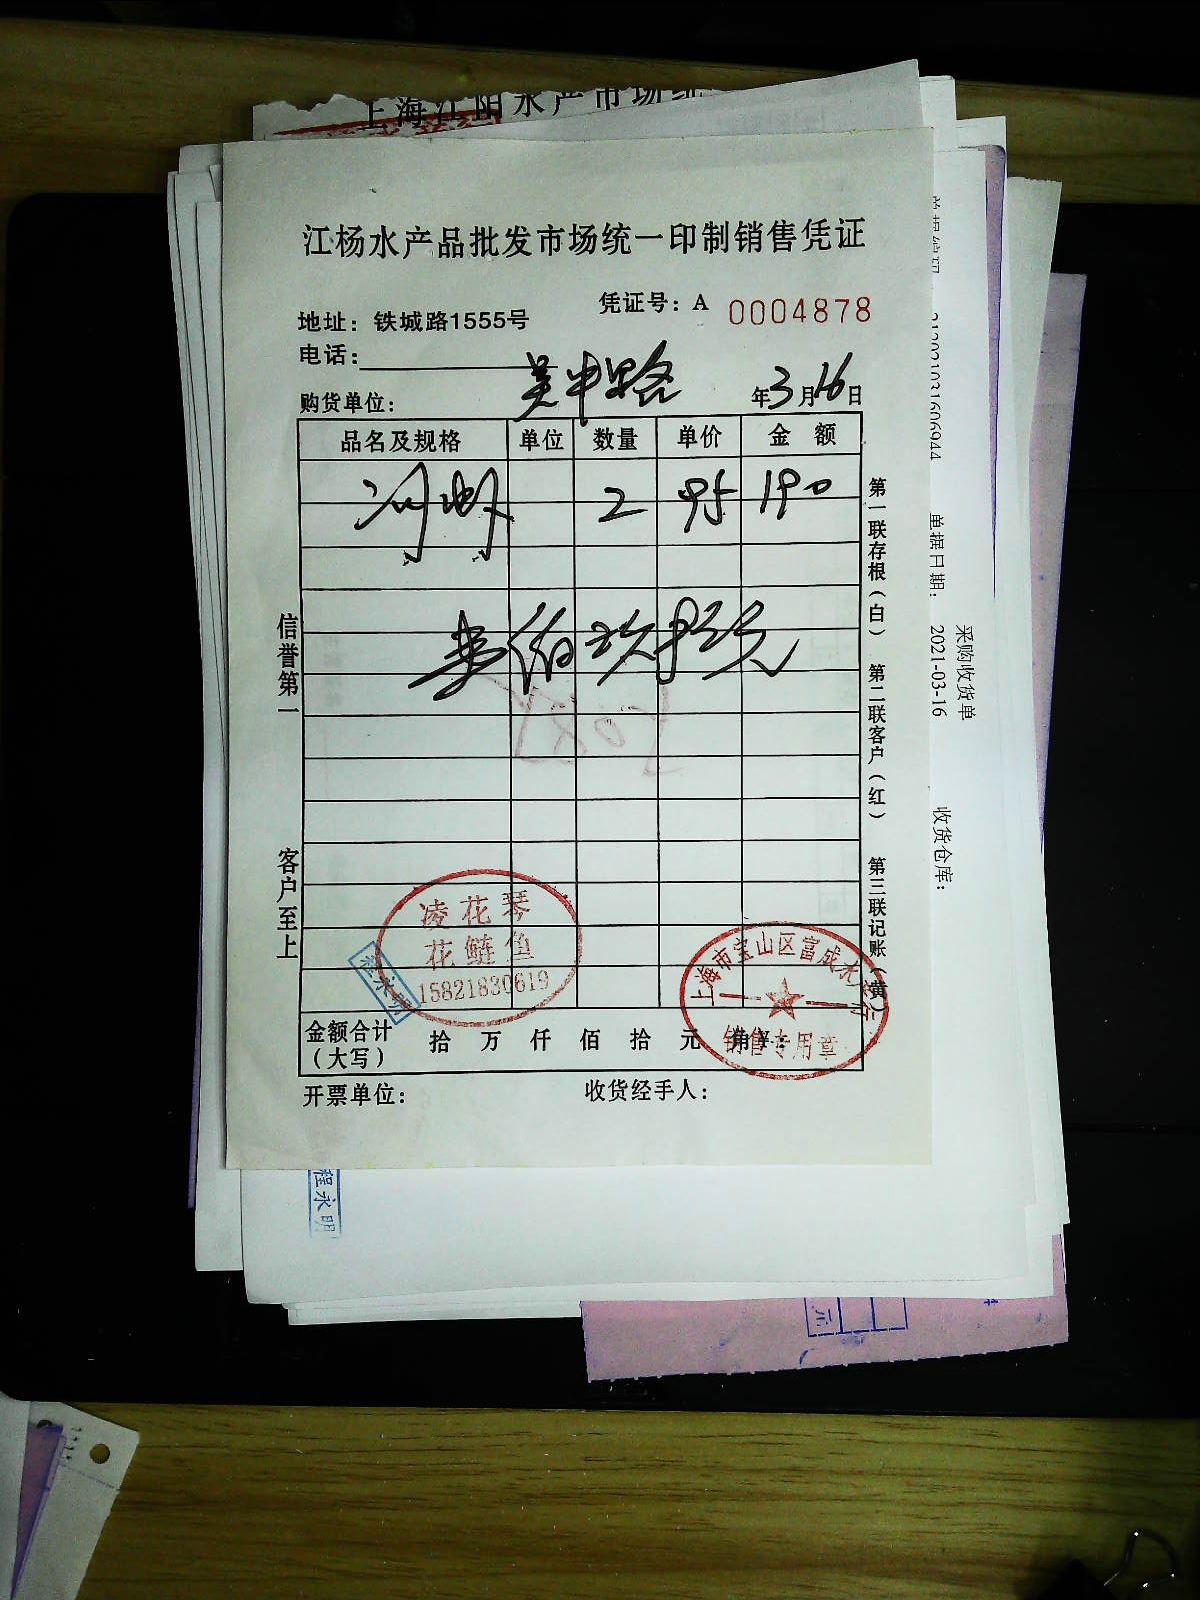 上海江阳水产市场统
江杨水产品批发市场统一印制销售凭证
凭证号：A 0004878
地址：铁城路1555号
电话：
购货单位： 吴中路 年3月16日
品名及规格 单位 数量 单价 金 额
河虾 2 95 190
壹佰玖拾元
信誉第一 客户至上
第一联存根（白） 第二联客户（红） 第三联记账（黄）
凌花琴
花鲢鱼
15821830619
程永明
上海市宝山区富成水产行
销售专用章
金额合计（大写） 拾 万 仟 佰 拾 元 角 ¥：
开票单位： 收货经手人：
采购收货单
单据日期： 2021-03-16
收货仓库：
程永明
示